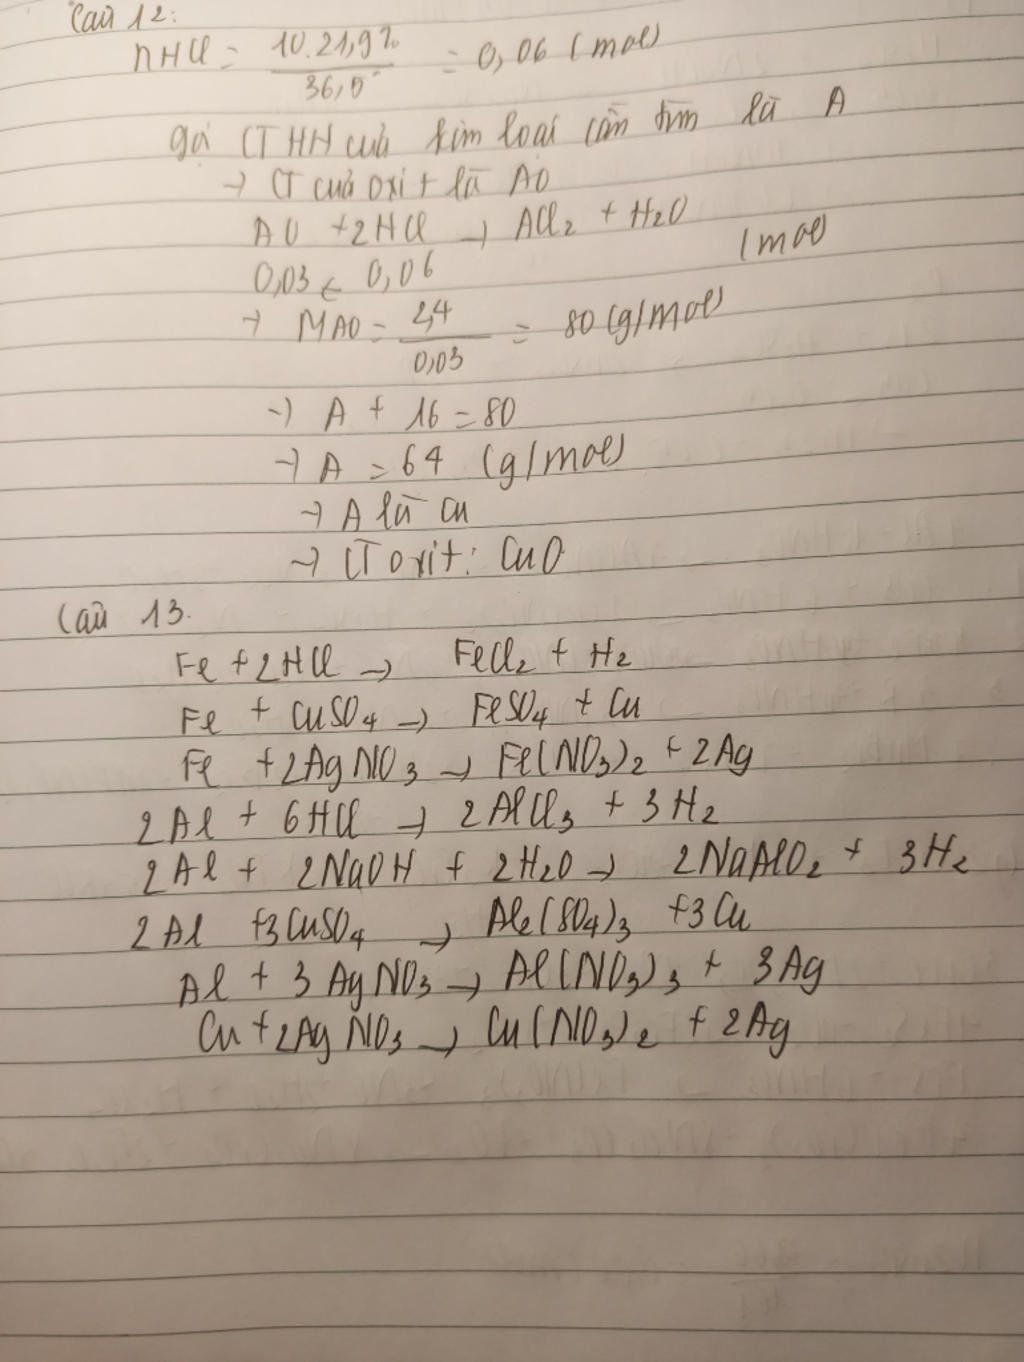 Câu 12:
nHCl = 10.21,9% / 36,5 = 0,06 (mol)
gọi CTHH của kim loại cần tìm là A
→ CT của oxit là AO
AO + 2HCl → ACl2 + H2O
0,03 ← 0,06 (mol)
→ MAO = 2,4 / 0,03 = 80 (g/mol)
→ A + 16 = 80
→ A = 64 (g/mol)
→ A là Cu
→ CT oxit: CuO
Câu 13.
Fe + 2HCl → FeCl2 + H2
Fe + CuSO4 → FeSO4 + Cu
Fe + 2AgNO3 → Fe(NO3)2 + 2Ag
2Al + 6HCl → 2AlCl3 + 3H2
2Al + 2NaOH + 2H2O → 2NaAlO2 + 3H2
2Al + 3CuSO4 → Al2(SO4)3 + 3Cu
Al + 3AgNO3 → Al(NO3)3 + 3Ag
Cu + 2AgNO3 → Cu(NO3)2 + 2Ag